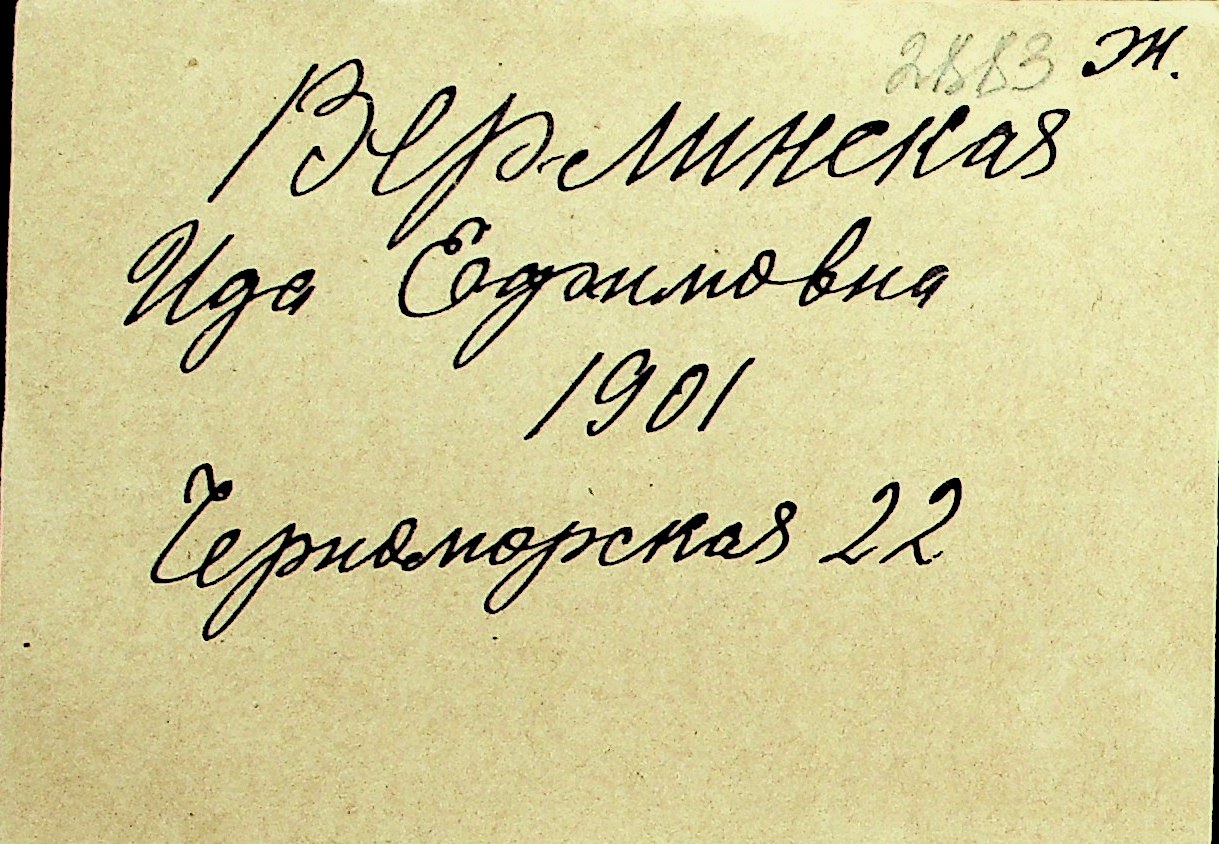 ж.
Верлинская
Ида Ефимовна
1901
Черноморская 22